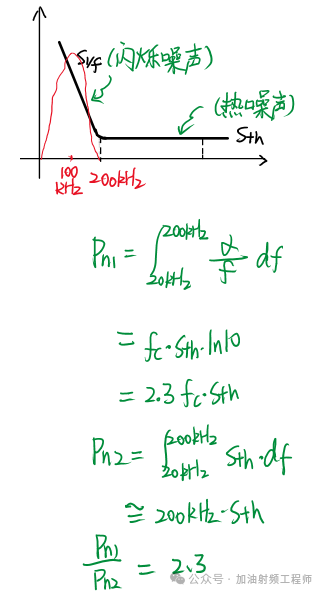 S1/f (闪烁噪声)
(热噪声)
Sth
100 kHz
200kHz
Pn1 = ∫_{20kHz}^{200kHz} α/f df
= fc·Sth·ln10
= 2.3 fc·Sth
Pn2 = ∫_{20kHz}^{200kHz} Sth·df
≅ 200kHz·Sth
Pn1/Pn2 = 2.3
公众号 · 加油射频工程师